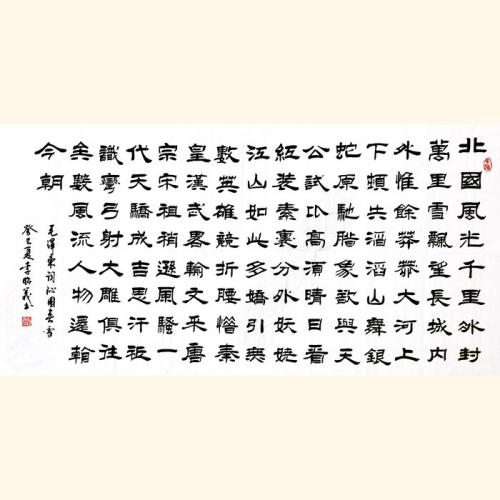 北國風光千里冰封
萬里雪飄望長城內
外惟餘莽莽大河上
下頓失滔滔山舞銀
蛇原馳臘象欲與天
公試比高須晴日看
紅裝素裹分外妖嬈
江山如此多嬌引無
數英雄競折腰惜秦
皇漢武畧輸文采唐
宗宋祖稍遜風騷一
代天驕成吉思汗祗
識彎弓射大雕俱往
矣數風流人物還看
今朝
毛澤東詞沁園春雪
癸巳夏李